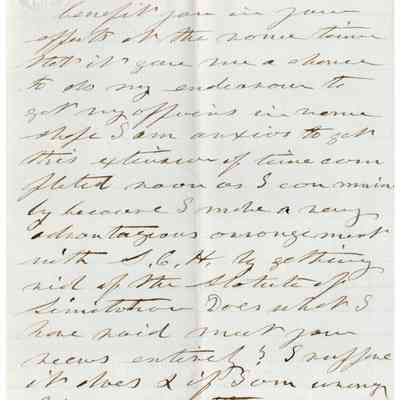 benefit you in your
efforts at the same time
that it gave me a chance
to do my endeavour to
get my affairs in some
shape I am anxios to get
this extension of time com
pleted soon as I can main
ly because I make a very
advantageous arrangement
with S.C.H. by getting
rid of the Statute of
Limitation Does what I
have said meet your
views entirely? I suppose
it does & if I am wrong